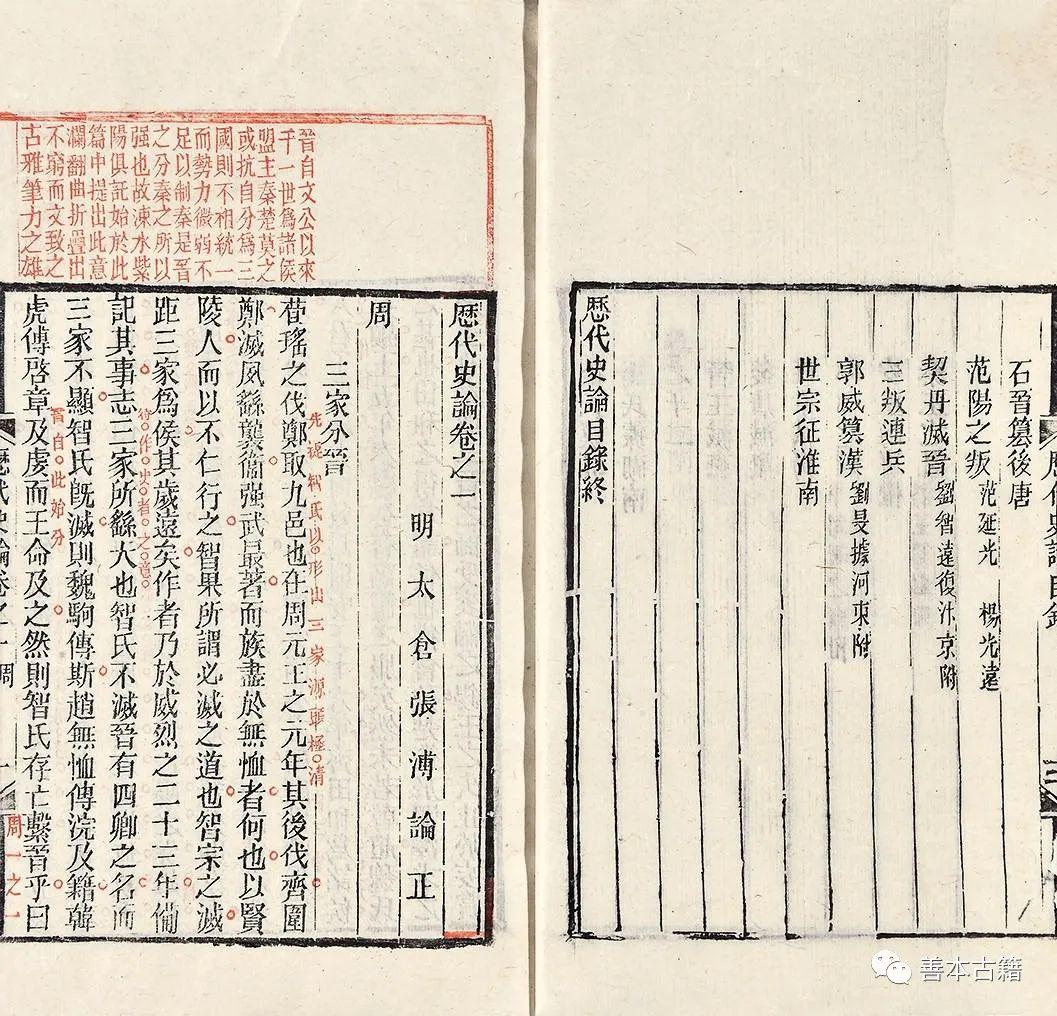 石晉篡後唐
范陽之叛 范延光 楊光遠
契丹滅晉 劉智遠復汴京附
三叛連兵
郭威篡漢 劉旻據河東附
世宗征淮南
歴代史論目錄終
晉自文公以來
千一世爲諸侯
盟主秦楚莫之
或抗自分爲三
國則不相統一
而勢力微弱不
足以制秦是晉
之分秦之所以
强也故涑水紫
陽俱託始於此
篇中提出此意
瀾翻曲折疊出
不窮而文致之
古雅筆力之雄
歴代史論卷之一
明太倉張溥論正
周
三家分晉
先從智氏以形出三家源極清
荀瑤之伐鄭取九邑也在周元王之元年其後伐齊圍
鄭滅夙繇襲衞强武最著而族盡於無恤者何也以賢
陵人而以不仁行之智果所謂必滅之道也智宗之滅
距三家爲侯其歲遠矣作者乃於威烈之二十三年備
作史者之意
記其事志三家所繇大也智氏不滅晉有四卿之名而
三家不顯智氏旣滅則魏駒傳斯趙無恤傳浣及籍韓
晉自此始分
虎傳啓章及虔而王命及之然則智氏存亡繫晉乎曰
周一之一
善本古籍